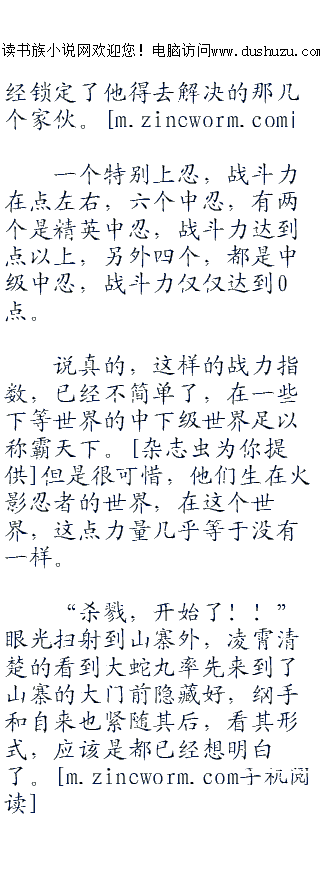 读书族小说网欢迎您！电脑访问www.dushuzu.com
经锁定了他得去解决的那几
个家伙。[m.zincworm.com|
一个特别上忍，战斗力
在点左右，六个中忍，有两
个是精英中忍，战斗力达到
点以上，另外四个，都是中
级中忍，战斗力仅仅达到0
点。
说真的，这样的战力指
数，已经不简单了，在一些
下等世界的中下级世界足以
称霸天下。[杂志虫为你提
供]但是很可惜，他们生在火
影忍者的世界，在这个世
界，这点力量几乎等于没有
一样。
“杀戮，开始了！！”
眼光扫射到山寨外，凌霄清
楚的看到大蛇丸率先来到了
山寨的大门前隐藏好，纲手
和自来也紧随其后，看其形
式，应该是都已经想明白
了。[m.zincworm.com手机阅
读]